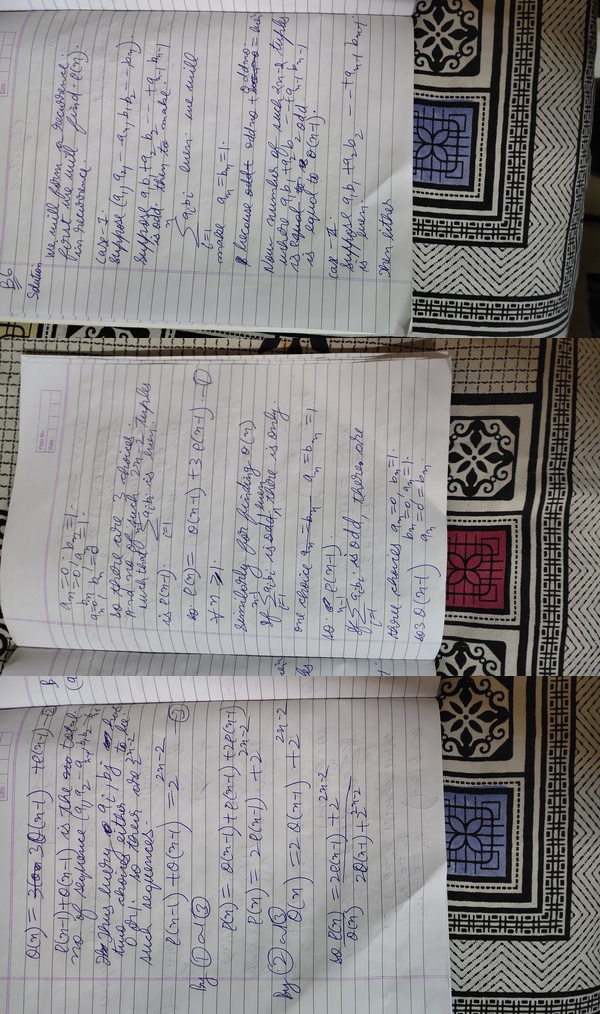 Date :
O(n) = 3O(n-1) + e(n-1) - ②
e(n-1) + O(n-1) is the total
no of sequence (a₁, a₂ - aₙ₋₁, b₁, b₂ - bₙ₋₁
Thus every aᵢ, bⱼ has
two choices either to be
0 or 1. so there are 2²ⁿ⁻²
such sequences.
e(n-1) + O(n-1) = 2²ⁿ⁻² - ③
By ① and ③
e(n) = O(n-1) + e(n-1) + 2e(n-1)
e(n) = 2e(n-1) + 2²ⁿ⁻²
By ② and ③
O(n) = 2O(n-1) + 2²ⁿ⁻²
so e(n)/O(n) = (2e(n-1) + 2²ⁿ⁻²)/(2O(n-1) + 2²ⁿ⁻²)
Page No.
Date :
aₙ = 0, bₙ = 1.
bₙ = 0, aₙ = 1.
aₙ = 0, bₙ = 0
so there are 3 choices.
And no of such 2n-2 tuples
such that Σᵢ₌₁ aᵢbᵢ is even.
is e(n-1).
so e(n) = O(n-1) + 3e(n-1) - ①
∀ n ≥ 1.
similarly for finding O(n)
If Σᵢ₌₁ⁿ⁻¹ aᵢbᵢ is even, there is only
one choice aₙ = bₙ = 1
so e(n-1).
If Σᵢ₌₁ⁿ⁻¹ aᵢbᵢ is odd, theres are
three choices aₙ = 0, bₙ = 1.
bₙ = 0, aₙ = 1.
so 3O(n-1) aₙ = 0 = bₙ.
B6
Date :
Solution
We will form a recurrence.
first we will find e(n).
in recurrence.
case-I.
Suppose (a₁, a₂, - - aₙ, b₁ b₂ - - , bₙ).
Suppose a₁b₁ + a₂b₂ - - + aₙ₋₁bₙ₋₁
is odd. then to make.
Σᵢ₌₁ⁿ aᵢbᵢ even. we will
make aₙ = bₙ = 1.
because odd no + odd no = even
Now number of such 2n-2 tuples
where a₁b₁ + a₂b₂ - - + aₙ₋₁bₙ₋₁
is equal to odd.
is equal to O(n-1).
case-II.
Suppose a₁b₁ + a₂b₂ - - + aₙ₋₁ bₙ₋₁
is even.
Then either